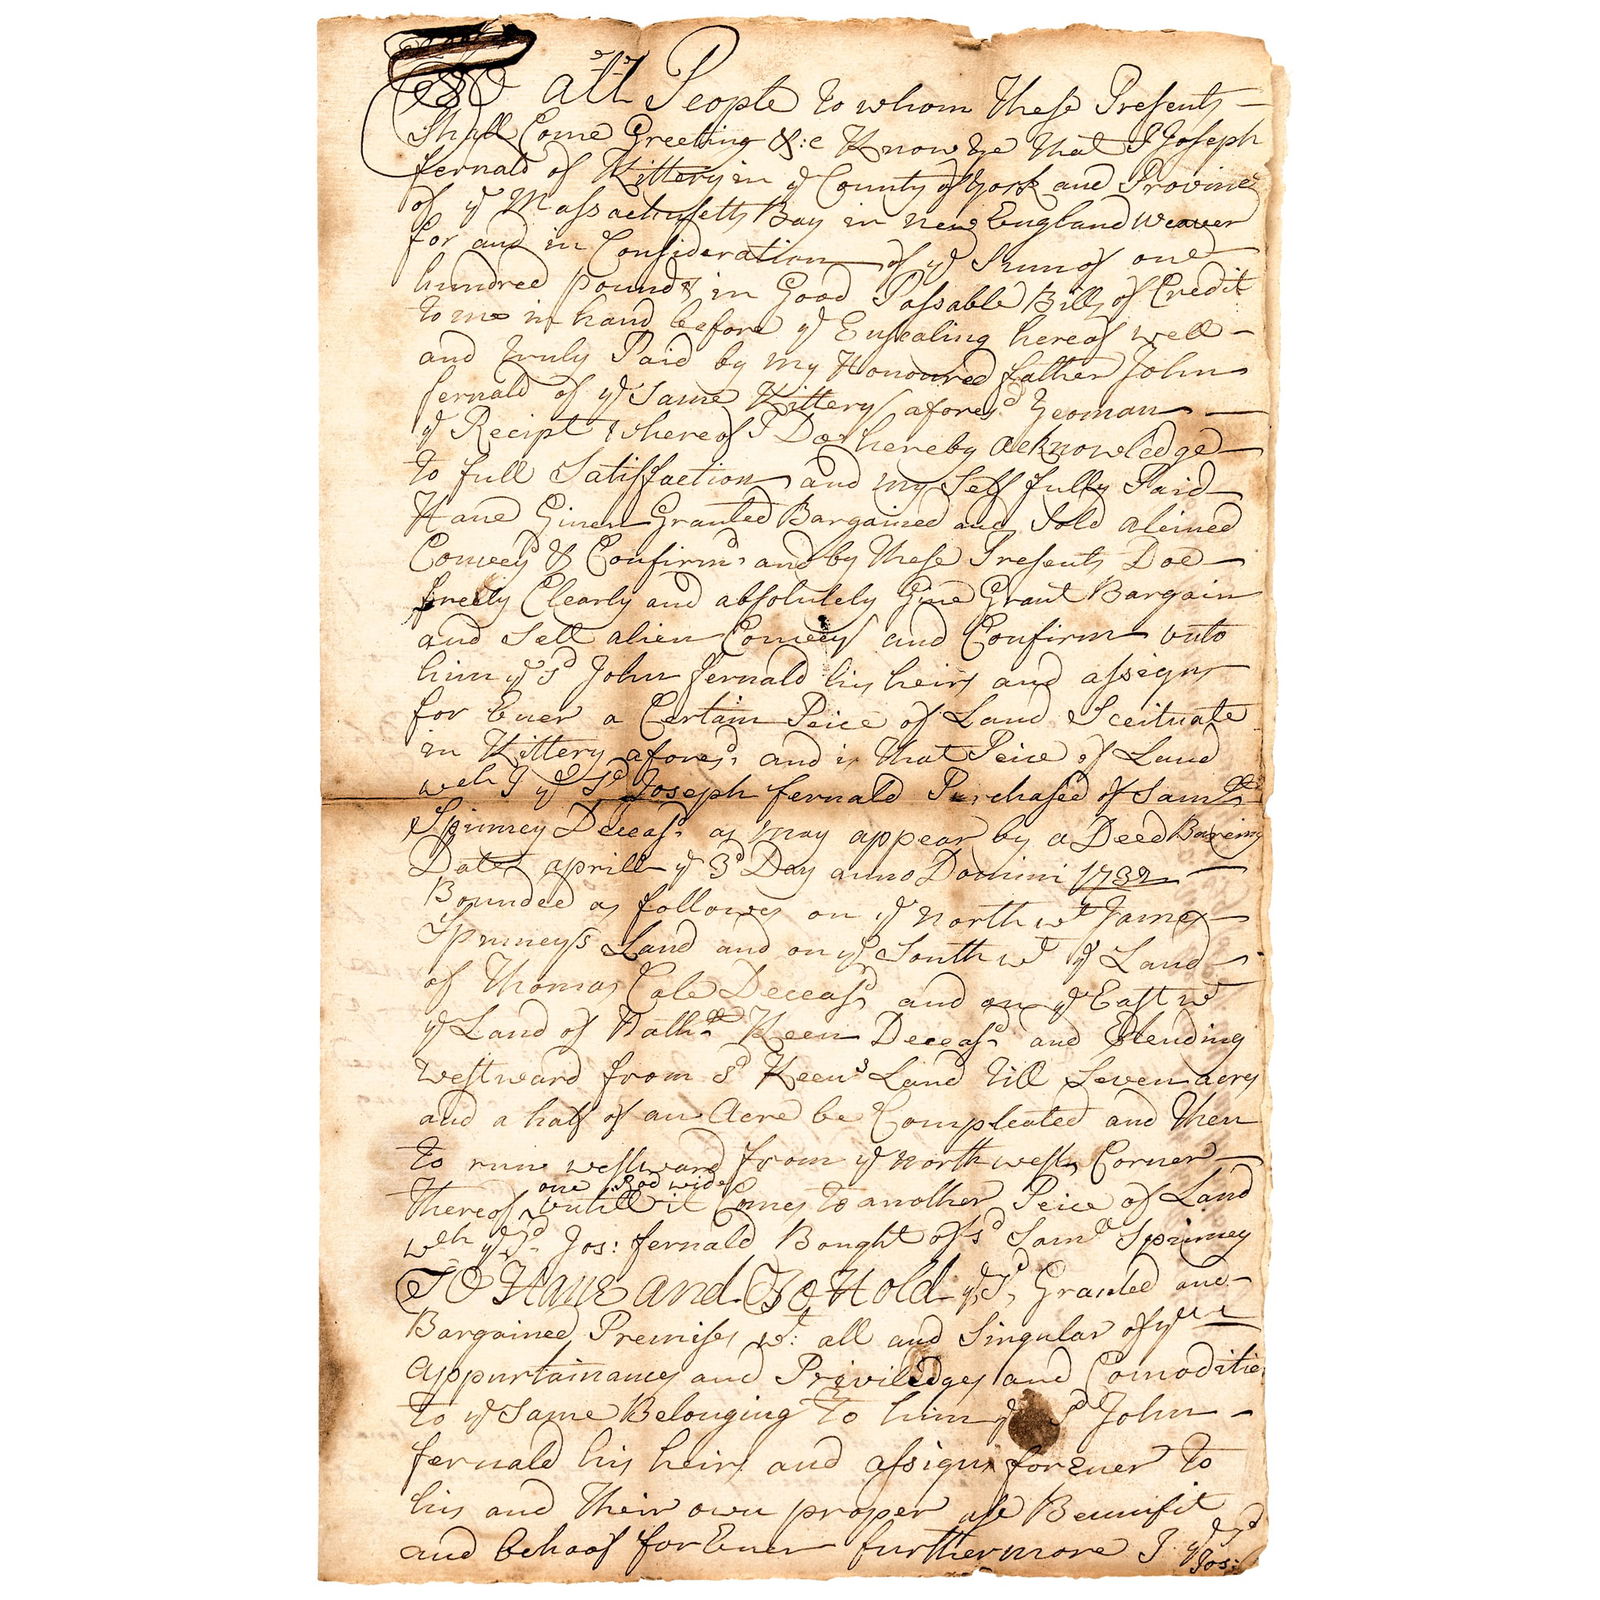 To all People to whom These Presents
Shall Come Greeting &:c Know ye that I Joseph
fernald of Kittery in ye County of York and Province
of ye Massachusetts Bay in new England Weaver
for and in Consideration of ye Sum of one
hundred pounds in Good Passable Bills of Credit
to me in hand before ye Ensealing hereof well
and truly Paid by my Honoured father John
fernald of ye Same Kittery aforesd Yeoman
ye Recipt whereof I Doe hereby acknowledge
to full Satisfaction and my Self fully Paid
Haue Giuen Granted Bargained and Sold aliened
Conveyd & Confirmd and by these Presents Doe
freely Clearly and absolutely Giue Grant Bargain
and Sell alien Convey and Confirm vnto
him ye sd John fernald his heirs and assigns
for Euer a Certain Peice of Land Sceituate
in Kittery aforesd and is that Peice of Land
wch I ye sd Joseph fernald Purchased of Samll
Spinney Deceasd as may appear by a Deed Bareing
Date aprill ye 3d Day anno Domini 1732
Bounded as followes on ye north wt James
Spinneys Land and on ye South wt ye Land
of Thomas Cole Deceasd and on ye East wt
ye Land of Nathll Keen Deceasd and Extending
westward from sd Keens Land till Seven acres
and a half of an Acre be Compleated and then
to run westward from ye north west Corner
one Rod wide
thereof vntill it Comes to another Peice of Land
wch ye sd Jos: fernald Bought of sd Samll Spinney
To Haue and To Hold ye sd Granted and
Bargained Premises wt: all and Singular of ye
appurtainances and Priviledges and Comodities
to ye Same Belonging to him ye sd John
fernald his heirs and assigns forEuer to
his and their own proper use Bennifit
and behoof forEuer furthermore I ye sd
Jos: